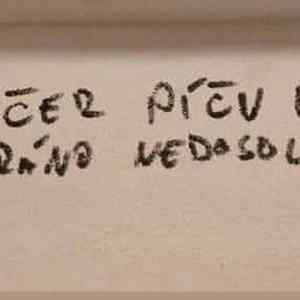 ČER PÍČU
RÁNO NEDOSOL